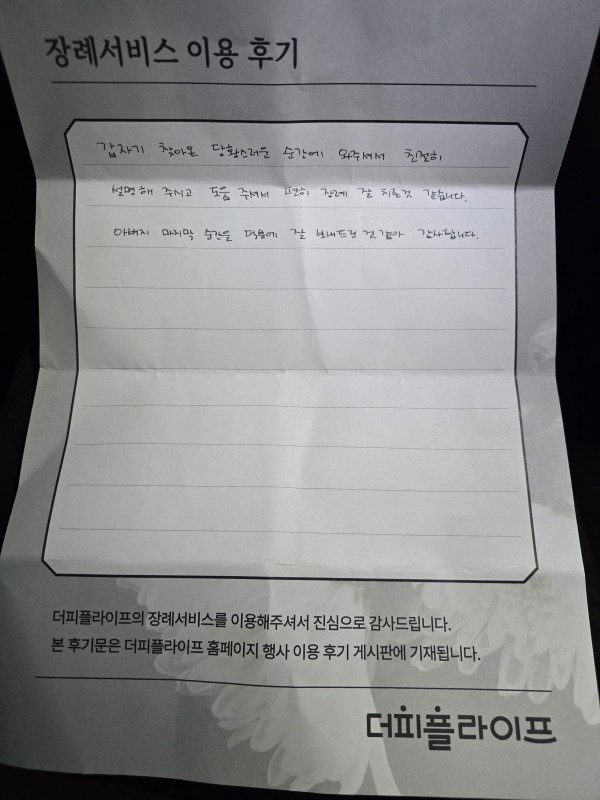 장례서비스 이용 후기
갑자기 찾아온 당황스러운 순간에 와주셔서 친절히
설명해 주시고 도움 주셔서 편히 장례 잘 치른것 같습니다.
아버지 마지막 순간을 덕분에 잘 보내드린 것 같아 감사합니다.
더피플라이프의 장례서비스를 이용해주셔서 진심으로 감사드립니다.
본 후기문은 더피플라이프 홈페이지 행사 이용 후기 게시판에 기재됩니다.
더피플라이프